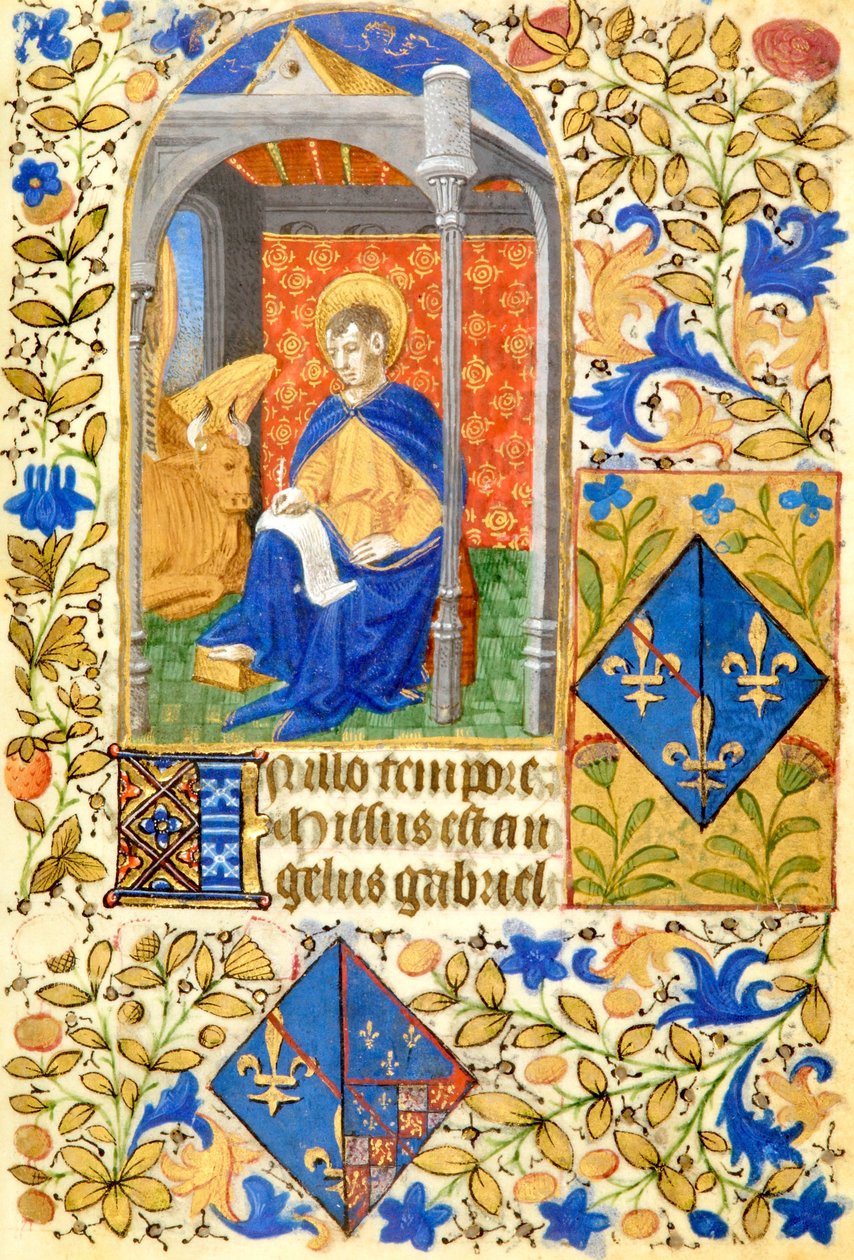 IN illo tempore
missus est an
gelus gabriel